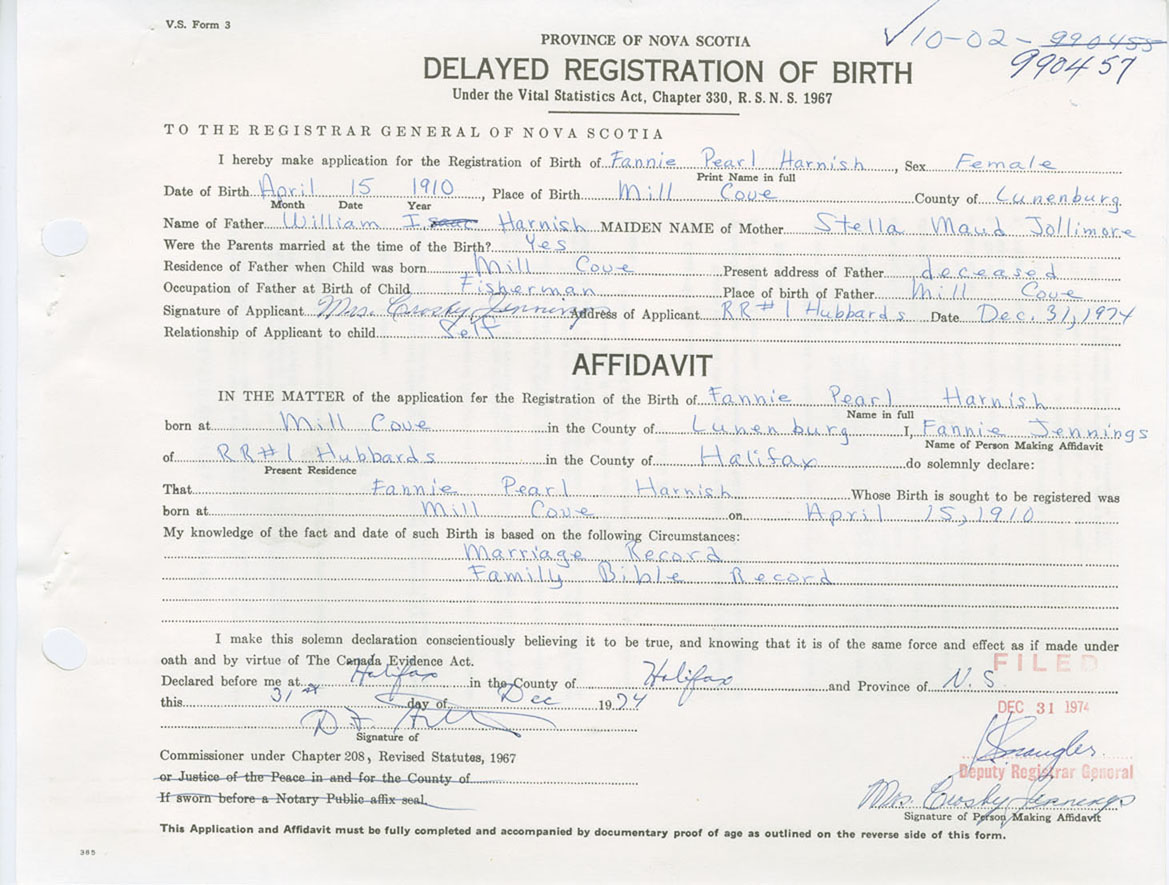 V.S. Form 3
✓10-02-990455
990457
PROVINCE OF NOVA SCOTIA
DELAYED REGISTRATION OF BIRTH
Under the Vital Statistics Act, Chapter 330, R. S. N. S. 1967
TO THE REGISTRAR GENERAL OF NOVA SCOTIA
I hereby make application for the Registration of Birth of Fannie Pearl Harnish, Sex Female
Print Name in full
Date of Birth April 15 1910, Place of Birth Mill Cove County of Lunenburg
Month Date Year
Name of Father William I. Harnish MAIDEN NAME of Mother Stella Maud Jollimore
Were the Parents married at the time of the Birth? Yes
Residence of Father when Child was born Mill Cove Present address of Father deceased
Occupation of Father at Birth of Child Fisherman Place of birth of Father Mill Cove
Signature of Applicant Mrs. Crosby Jennings Address of Applicant RR#1 Hubbards Date Dec. 31, 1974
Relationship of Applicant to child Self
AFFIDAVIT
IN THE MATTER of the application for the Registration of the Birth of Fannie Pearl Harnish
Name in full
born at Mill Cove in the County of Lunenburg I, Fannie Jennings
Name of Person Making Affidavit
of RR#1 Hubbards in the County of Halifax do solemnly declare:
Present Residence
That Fannie Pearl Harnish Whose Birth is sought to be registered was
born at Mill Cove on April 15, 1910
My knowledge of the fact and date of such Birth is based on the following Circumstances:
Marriage Record
Family Bible Record
I make this solemn declaration conscientiously believing it to be true, and knowing that it is of the same force and effect as if made under
oath and by virtue of The Canada Evidence Act.
FILED
Declared before me at Halifax in the County of Halifax and Province of N.S.
this 31st day of Dec 1974
DEC 31 1974
Signature of
Commissioner under Chapter 208, Revised Statutes, 1967
Deputy Registrar General
or Justice of the Peace in and for the County of
If sworn before a Notary Public affix seal.
Mrs. Crosby Jennings
Signature of Person Making Affidavit
This Application and Affidavit must be fully completed and accompanied by documentary proof of age as outlined on the reverse side of this form.
385